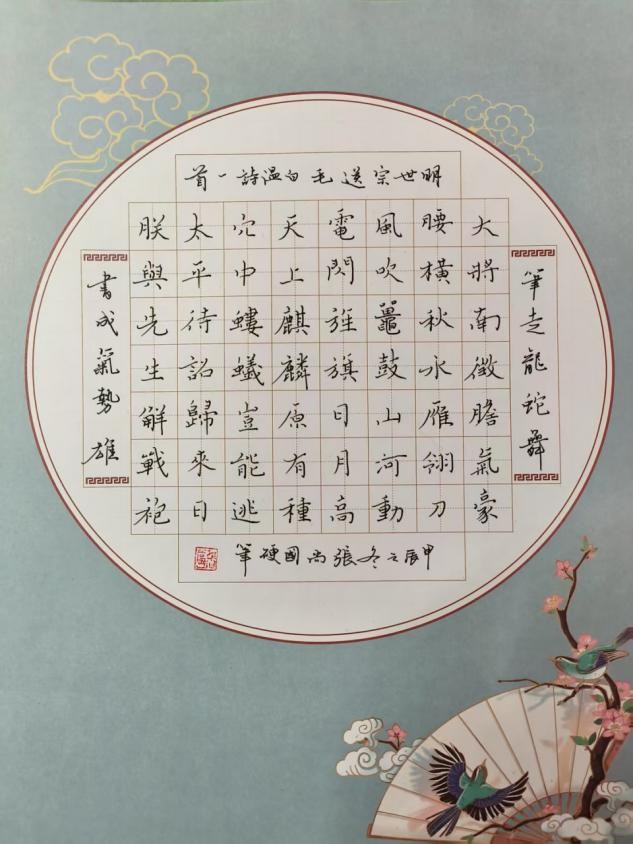 明世宗送毛白温詩一首
筆走龍蛇舞
大將南徵膽氣豪
腰橫秋水雁翎刀
風吹鼉鼓山河動
電閃旌旗日月高
天上麒麟原有種
穴中螻蟻豈能逃
太平待詔歸來日
朕與先生解戰袍
書成氣勢雄
甲辰之冬張尚國硬筆